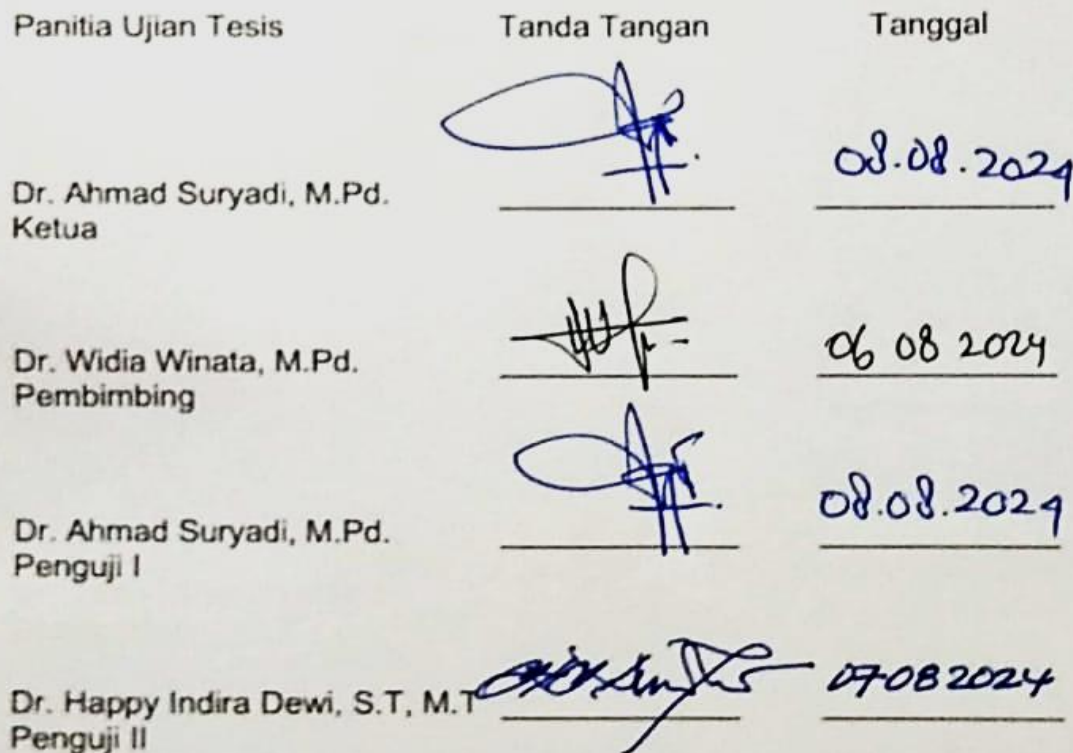 Panitia Ujian Tesis Tanda Tangan Tanggal
08.08.2024
Dr. Ahmad Suryadi, M.Pd.
Ketua
06 08 2024
Dr. Widia Winata, M.Pd.
Pembimbing
08.08.2024
Dr. Ahmad Suryadi, M.Pd.
Penguji I
Dr. Happy Indira Dewi, S.T, M.T 07082024
Penguji II